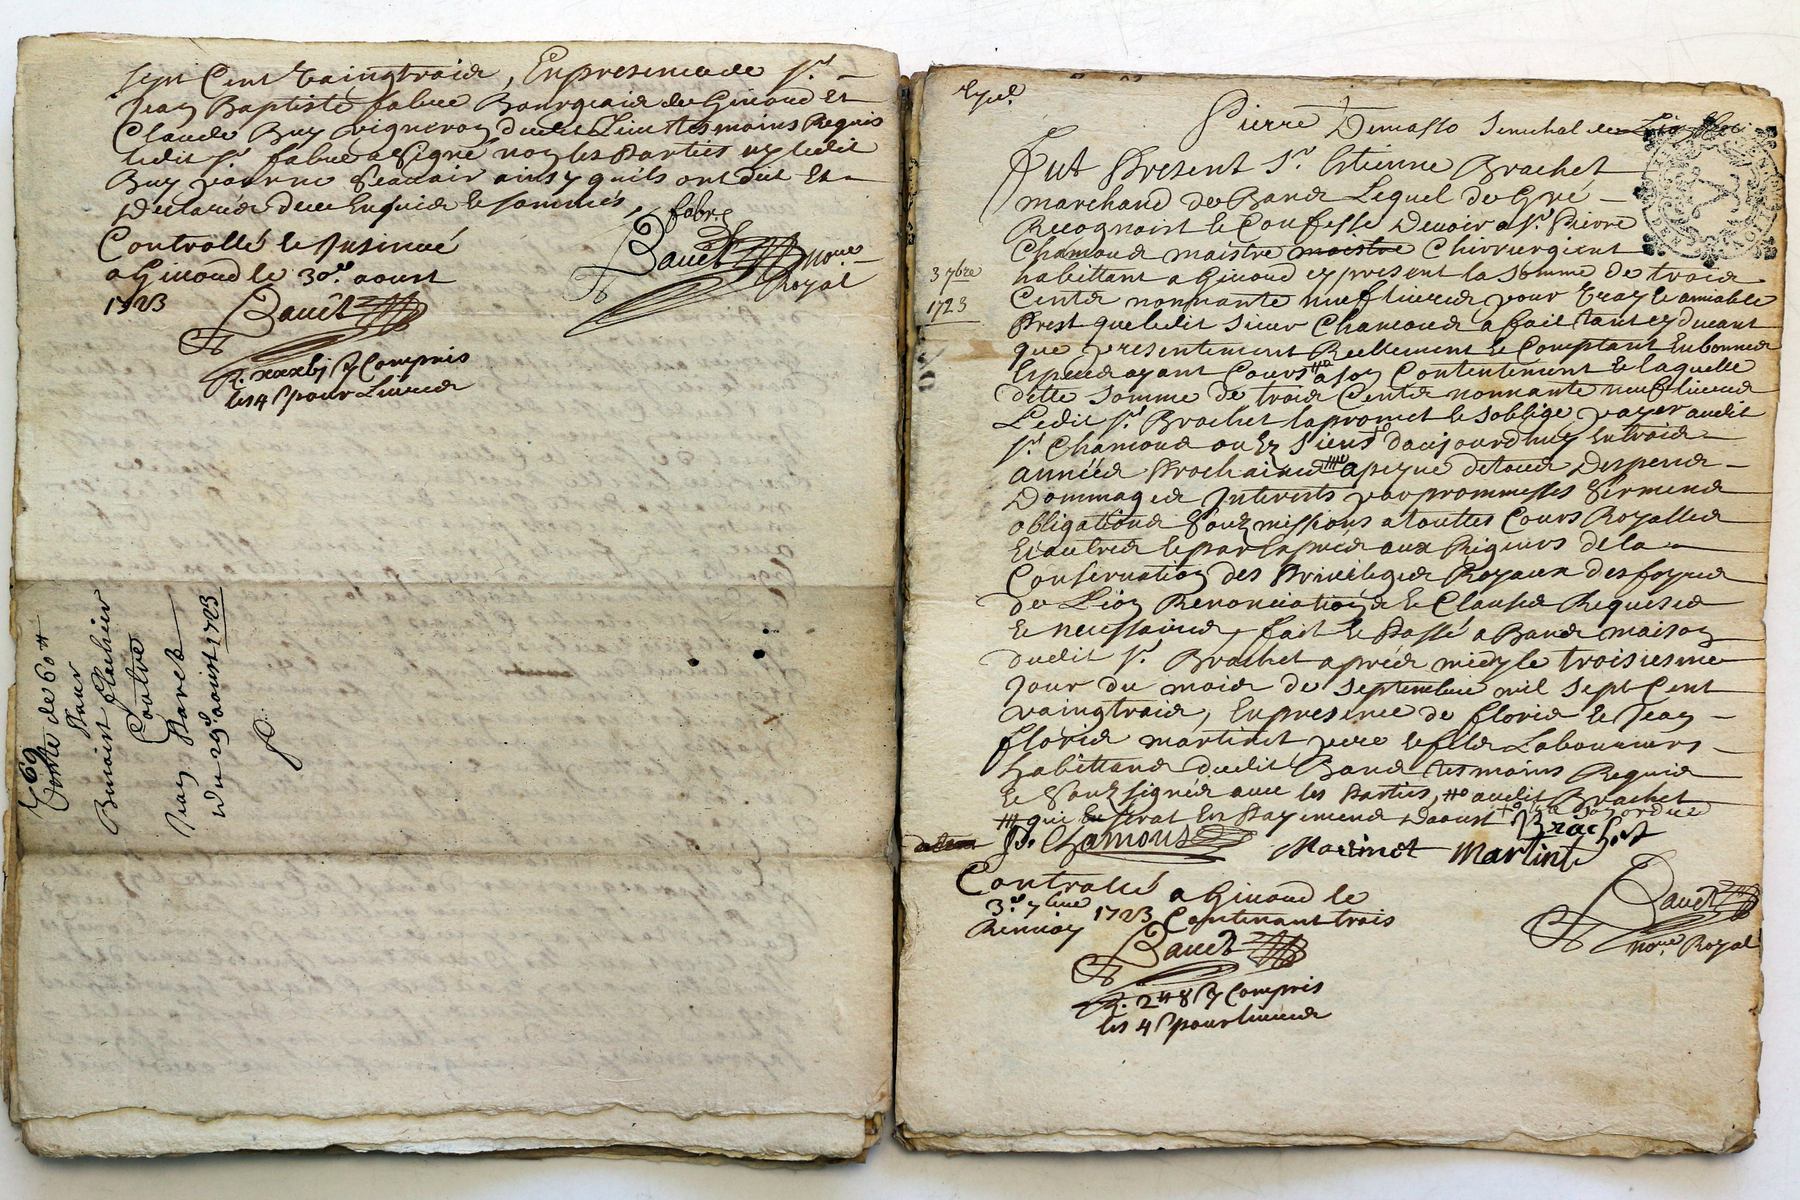 sept Cent vaingtrois, En presence de Sr
Jean Baptiste fabre Bourgeois de Givord Et
Claude Buy vigneron dudit Lieu tesmoins Requis
ledit Sr fabre a signé non les Parties ny ledit
Buy pour ne scavoir ainsy quils ont dit Et
declarés de ce Enquis et sommés
fabre
Controllé et Insinué
a Givord le 30e aoust
1723
nore
Royal
R. xxxbj s Compris
les 4 s pour Livres
69
Vente de 60 ₶
Pour
Benoist flachier
Contre
Jean
Du 29e aoust 1723
Expé.
Pierre Senechal de
Fut Present Sr Etienne Brachet
marchand de Bans Lequel de Gré
Recognoist et Confesse Devoir a Sr Pierre
Chamous maistre maistre Chirurgient
habittant a Givord cy present la somme de trois
3 7bre
1723
Cents nonnante neuf livres pour vray et amiable
Prest que ledit sieur Chamous a fait tant cy devant
que presentement Reellement et Comptant En bonnes
Especes ayant Cours a son Contentement Et laquelle
ditte somme de trois Cents nonnante neuf livres
Ledit Sr Brachet la promet et soblige payer audit
Sr Chamous ou Ez siens daujourdhuy En trois
années Prochaines a peyne de tous Despens
Dommages Interests par prommesses serments
obligations soubzmissions a touttes Cours Royalles
Et autres et par Exprés aux Rigeurs de la
Conservation des Privileges Royaux des foyres
de Lion Renonciations et Clauses Requises
et necessaires, fait et Passé a Bans maison
dudit Sr Brachet aprés midy le troisiesme
jour du mois de septembre mil sept Cent
vaingtrois, En presence de floris et Jean
floris martinet pere et fils Laboureurs
habittans dudit Bans tesmoins Requis
et soubzsignés avec les Parties, ₶o audit Brachet
que En serat En Payement
P. Chamous Brachet
Martinet Martinet
Controllé a Givord le
3e 7bre 1723 Contenant trois
Renvoy
nore Royal
R. 2 ₶ 8 s Compris
les 4 s pour livres